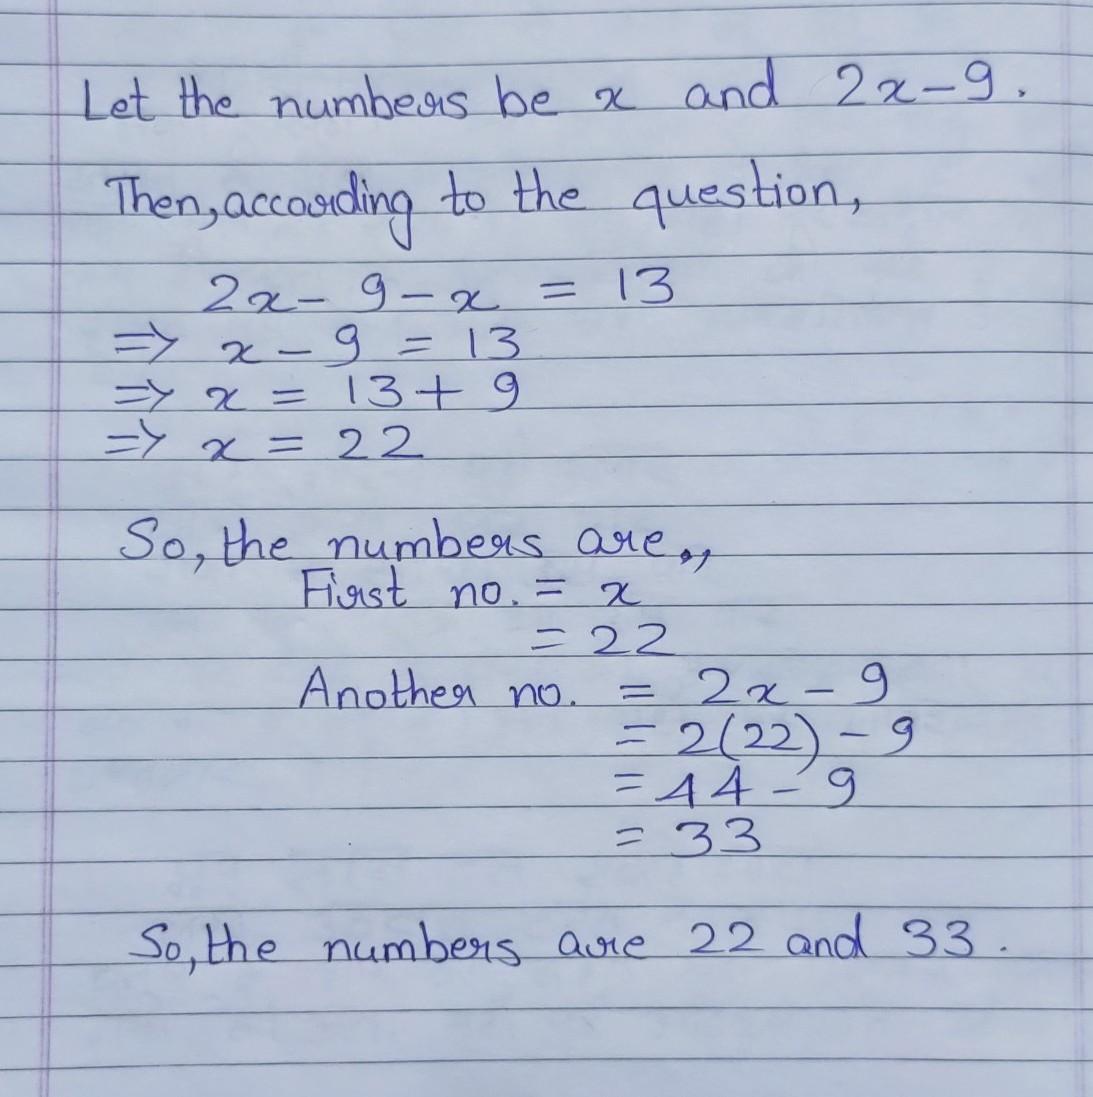 Let the numbers be x and 2x-9.
Then, according to the question,
2x- 9-x = 13
=> x-9 = 13
=> x = 13+9
=> x = 22
So, the numbers are.,,
First no. = x
= 22
Another no. = 2x-9
= 2(22)-9
= 44-9
= 33
So, the numbers are 22 and 33.